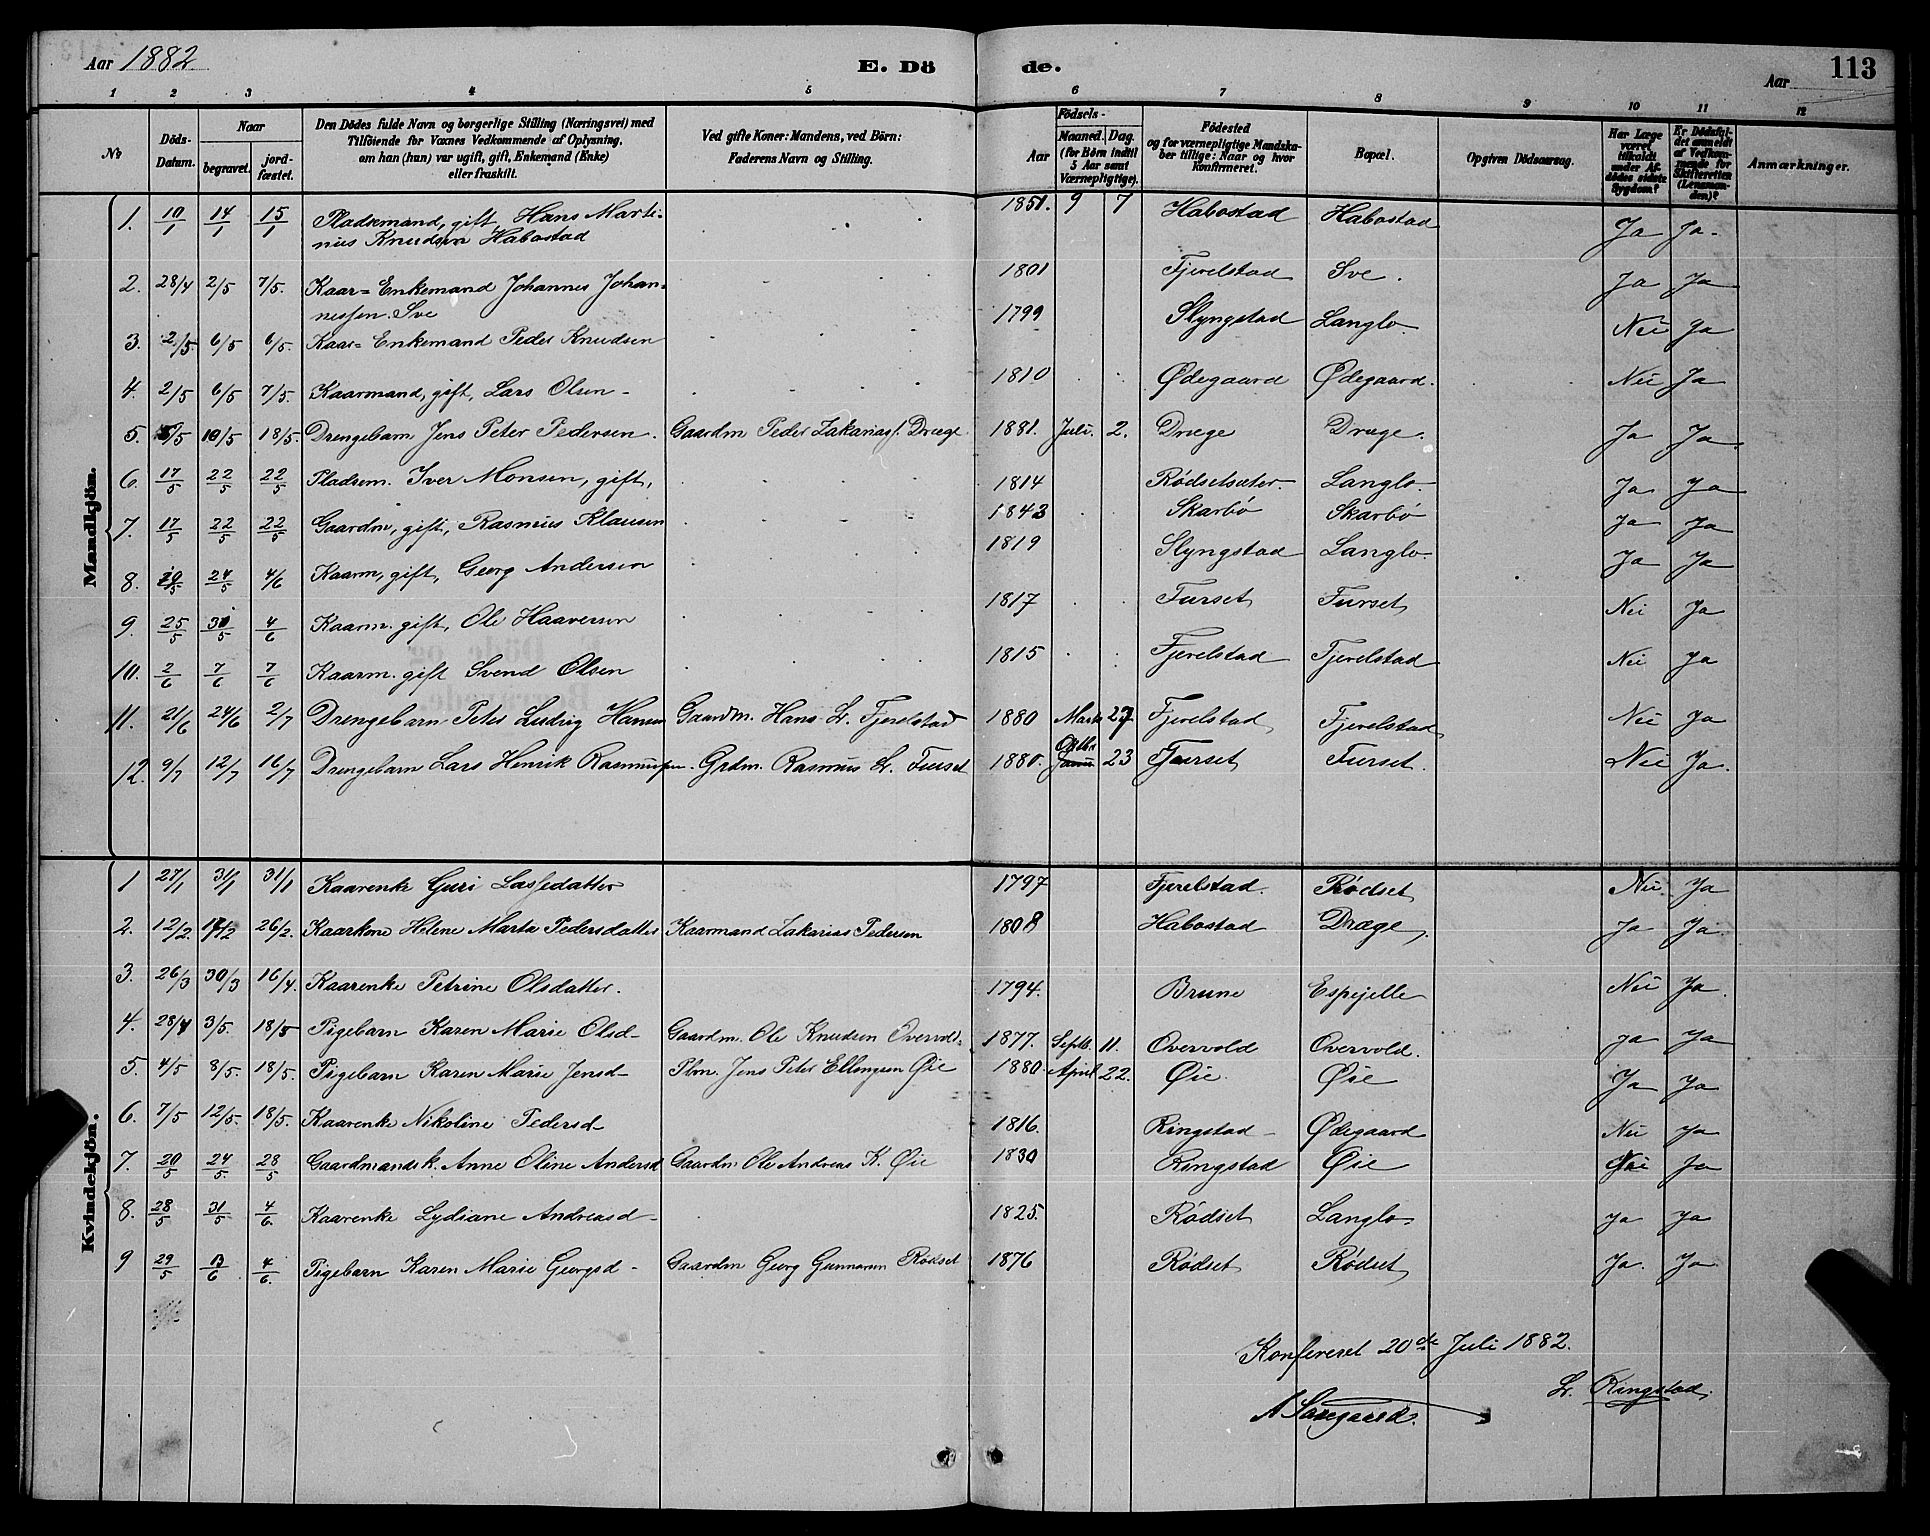 Aar 1882. E. Dö de. Aar 113
1 2 3 4 5 6 7 8 9 10 11 12
No
Döds-Datum.
Naar
begravet.
jord-fæstet.
Den Dödes fulde Navn og borgerlige Stilling (Næringsvei) med
Tilföiende for Voxnes Vedkommende af Oplysning,
om han (hun) var ugift, gift, Enkemand (Enke)
eller fraskilt.
Ved gifte Koner: Mandens, ved Börn:
Faderens Navn og Stilling.
Födsels-
Aar
Maaned. Dag.
(for Börn indtil
5 Aar samt
Værnepligtige).
Födested
og for værnepligtige Mandska-
ber tillige: Naar og hvor
konfirmeret.
Bopæl.
Opgiven Dödsaarsag.
Har Læge
været
tilkaldt
under Af-
dödes sidste
Sygdom?
Er Dödsfal-
det anmeldt
af Vedkom-
mende for
Skifteretten
(Lensman-
den)?
Anmærkninger.
Mandkjön.
1. 10/1 14/1 15/1 Pladsemand, gift Hans Marti- 1851. 9 7 Habostad Habostad Ja Ja.
nius Knudsen Habostad
2. 28/4 2/5 7/5. Kaar= Enkemand Johannes Johan- 1801 Fjerelstad Sve. Ja Ja
nessen Sve
3. 2/5 6/5 6/5. Kaar= Enkemand Peder Knudsen 1799 Slyngstad Langlo. Nei Ja
4. 2/5 6/5 7/5. Kaarmand, gift, Lars Olsen 1810 Ødegaard Ødegaard. Nei Ja
5. 5/5 10/5 18/5. Drengebarn Jens Peter Pedersen. Gaardm Peder Zakarias. Drage 1881. Juli. 2. Drage Drage. Ja Ja
6. 17/5 22/5 22/5 Pladsem. Iver Monsen, gift, 1814 Rødsetsæter. Langlo. Ja Ja
7. 17/5 22/5 22/5 Gaardm, gift, Rasmus Klausen 1843 Skarbø Skarbø Ja Ja
8. 19/5 24/5 4/6 Kaarm, gift, Georg Andersen 1819 Slyngstad Langlo Ja Ja
9. 25/5 31/5 4/6 Kaarm. gift, Ole Haaversen 1817 Furset Furset Nei Ja
10. 2/6 7/6 7/6 Kaarm. gift Svend Olsen 1815 Fjerelstad Fjerelstad Nei Ja
11. 21/6 24/6 2/7 Drengebarn Peter Ludvig Hansen Gaardm. Hans L. Fjerelstad 1880 Marts 27. Fjerelstad Fjerelstad Nei Ja
12. 9/7 12/7 16/7 Drengebarn Lars Henrik Rasmussen. Grdm. Rasmus L. Furset 1880. 23 Furset Furset. Nei Ja.
Kvindekjön.
1 27/1 31/1 31/1 Kaarenke Guri Lassedatter 1797 Fjerelstad. Rødset Nei. Ja
2. 12/2 17/2 26/2. Kaarkone Helene Marta Pedersdatter Kaarmand Zakarias Pedersen 1808 Habostad Drage. Ja Ja
3. 26/3 30/3 16/4. Kaarenke Petrine Olsdatter. 1794. Brune Espejelle Nei Ja.
4. 28/4 3/5. 18/5 Pigebarn Karen Marie Olsd- Gaardm. Ole Knudsen Overvold- 1877. Septb. 11. Overvold Overvold. Ja Ja
5. 4/5 8/5 18/5. Pigebarn Karen Marie Jensd- Plm. Jens Peter Ellingsen Øie 1880. April 22. Øie. Øie Ja Ja
6. 7/5 12/5. 18/5. Kaarenke Nikoline Pedersd- 1816. Ringstad Ødegaard Nei Ja
7. 20/5 24/5. 28/5 Gaardmandsk. Anne Oline Andersd Gaardm Ole Andreas K. Øie 1830 Ringstad Øie Nei Ja
8. 28/5 31/5 4/6. Kaarenke Lydiane Andreasd- 1825. Rødset Langlo. Ja Ja
9 29/5 4/6. Pigebarn Karen Marie Georgsd- Gaardm Georg Gunnarsen Rødset 1876 Rødset Rødset Ja. Ja
Konfereret 20de Juli 1882.
L. Ringstad.